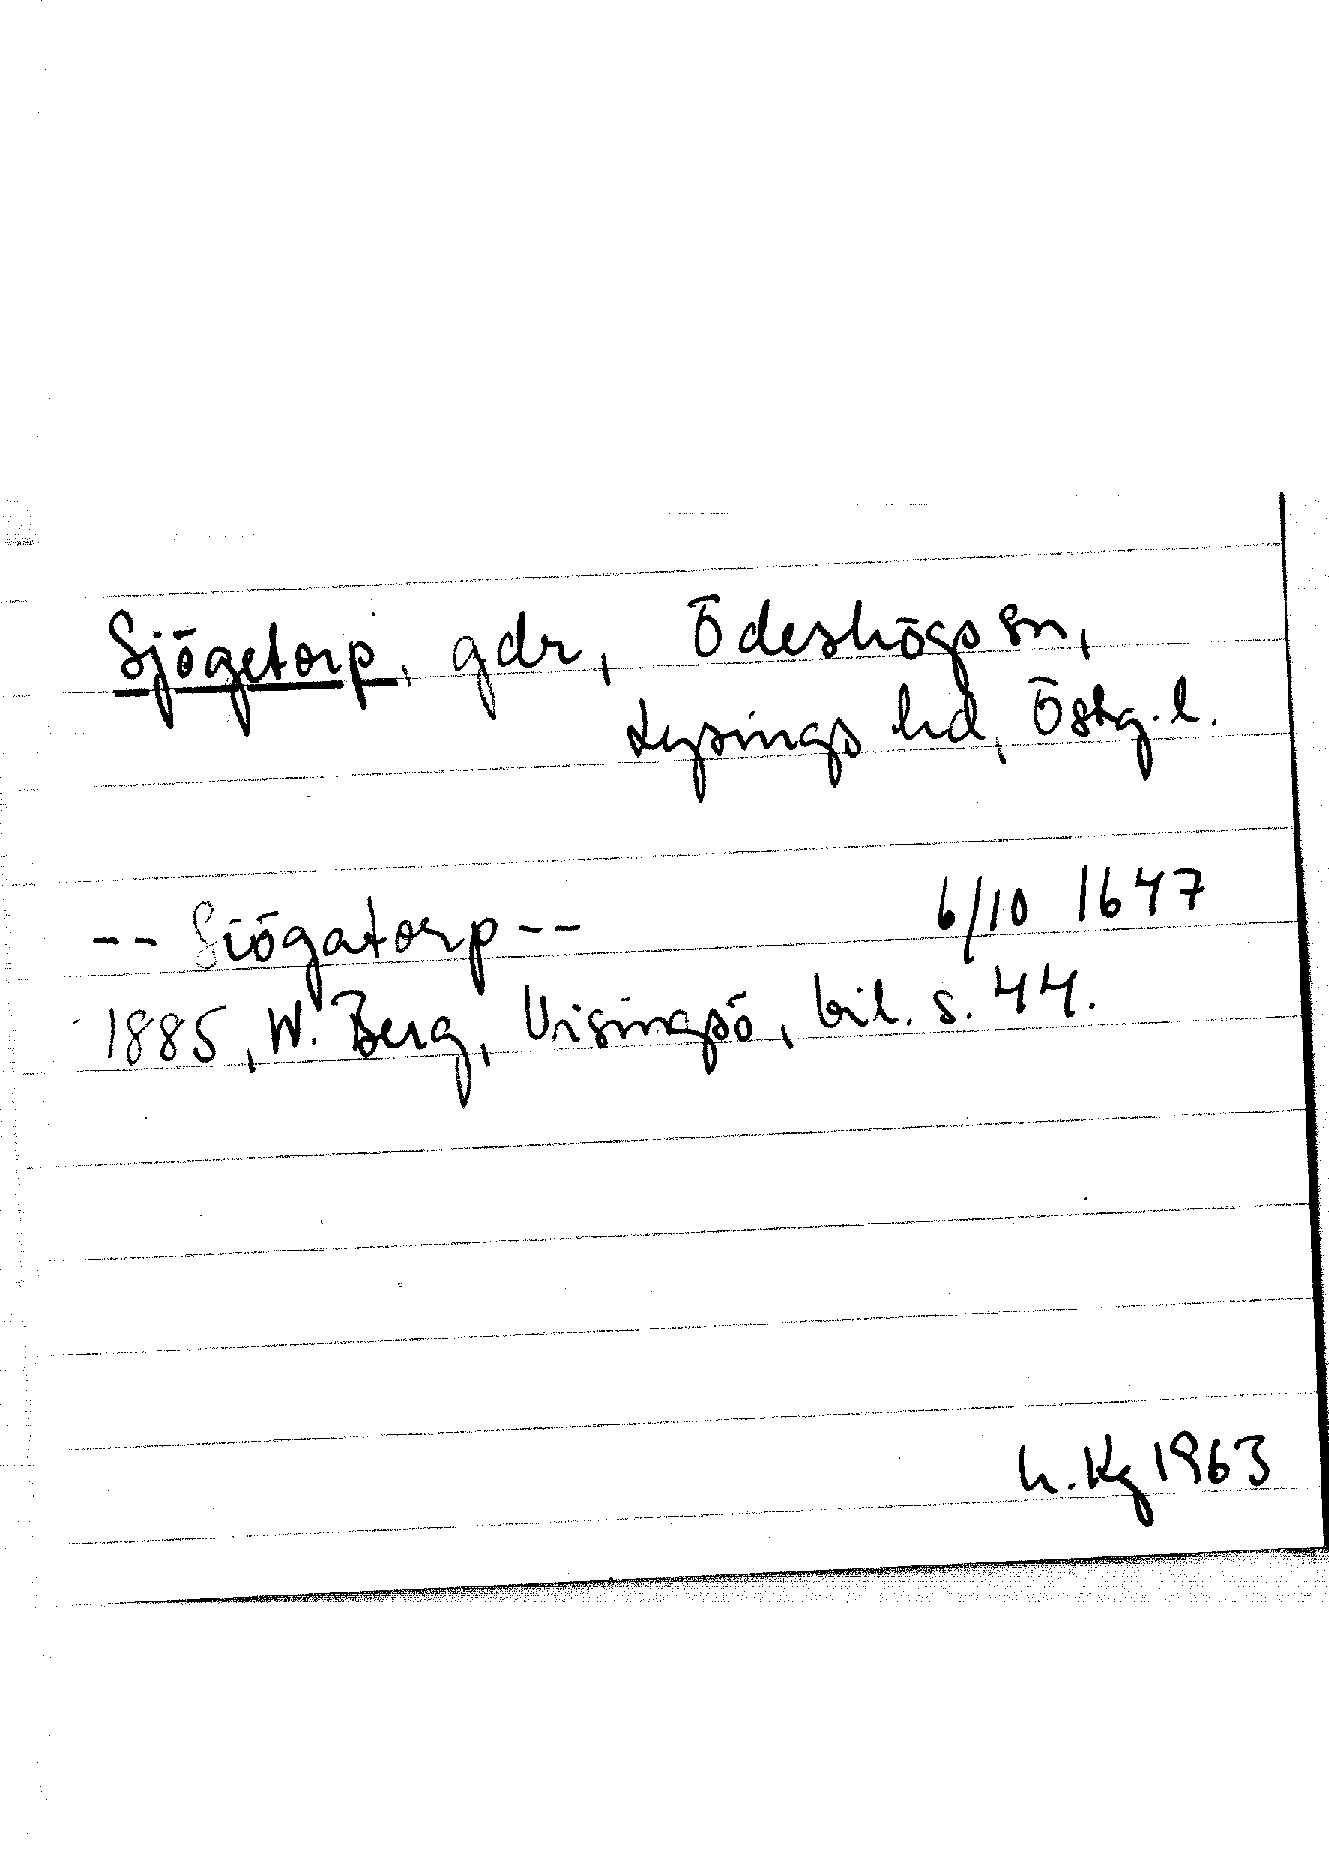 Sjögetorp, gdr, Ödeshögs sn,
Lysings hd, Östg.l.
-- Siögatorp -- 6/10 1647
1885, W. Berg, Visingsö, bil. s. 44.
h. Kg 1963